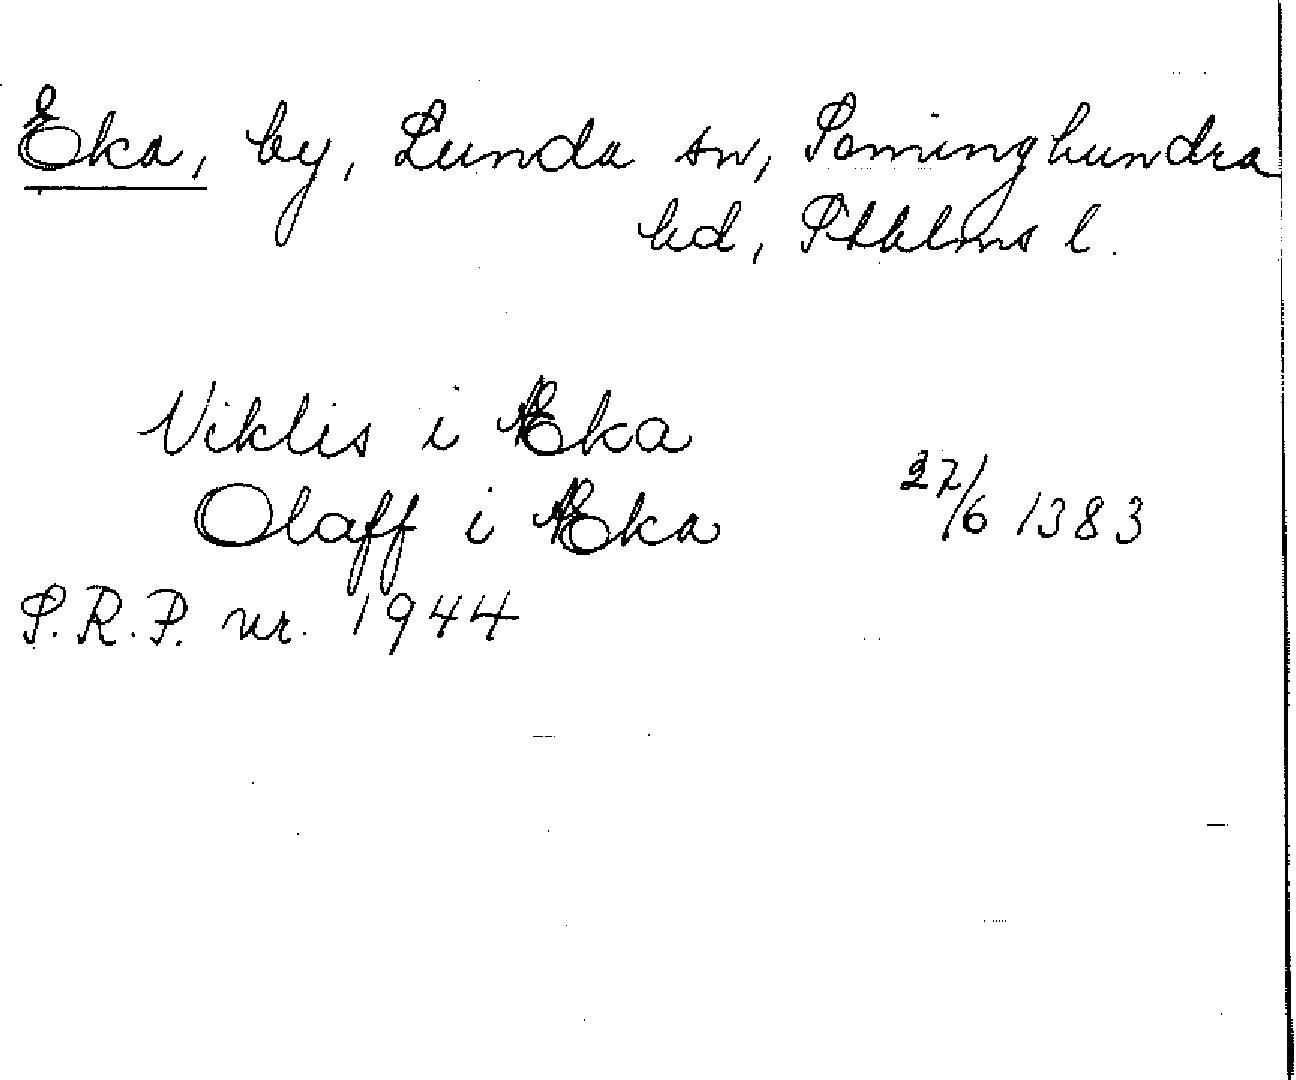 Eka, by, Lunda sn, Seminghundra
hd, Sthlms l.
Niklis i Eka
Olaff i Eka 27/6 1383
S.R.P. nr. 1944